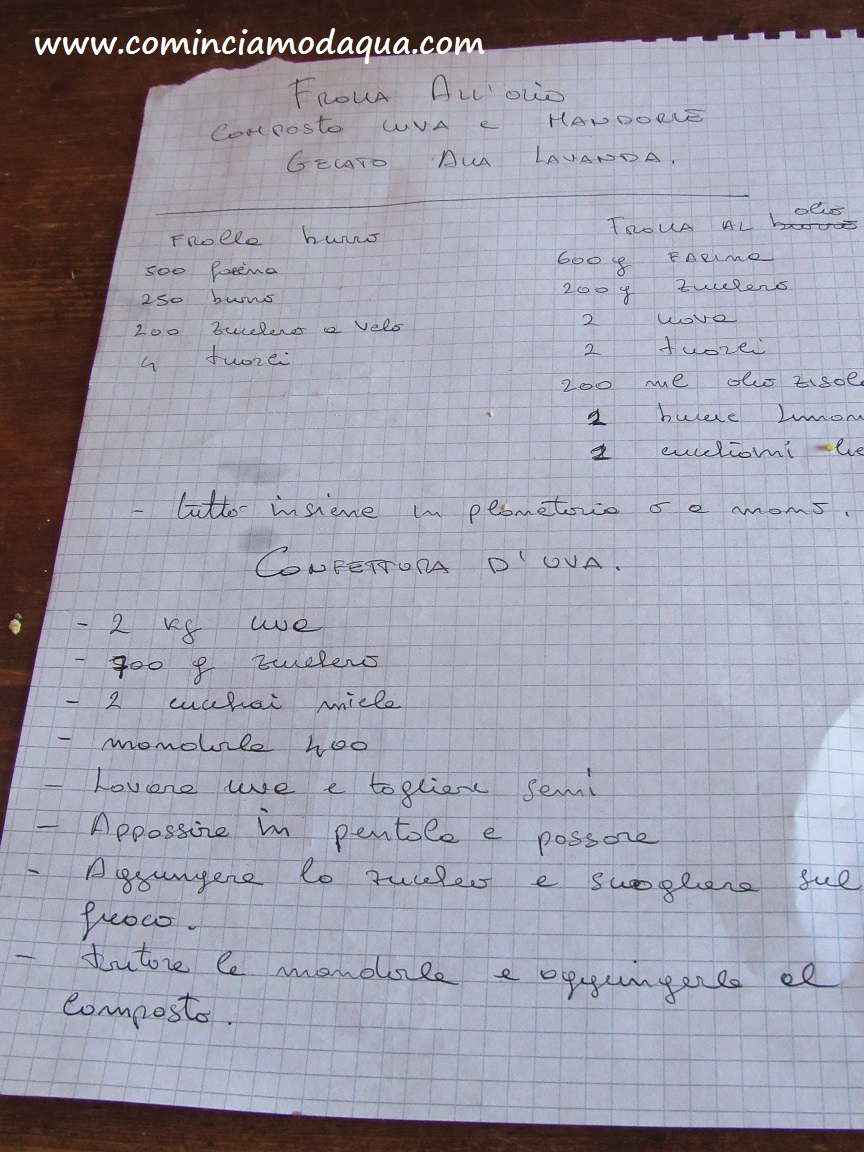 www.cominciamodaqua.com
FROLLA ALL'OLIO
COMPOSTO UVA e MANDORLE
GELATO ALLA LAVANDA.
FROLLA burro
500 farina
250 burro
200 zucchero a velo
4 tuorli
FROLLA AL burro olio
600 g FARINA
200 g zucchero
2 uova
2 tuorli
200 ml olio
1 bucce
1
- tutto insieme in planetaria o a mano.
CONFETTURA D'UVA.
- 2 kg uva
- 700 g zucchero
- 2 cucchiai miele
- mandorle 400
- Lavare uva e togliere semi
- Appassire in pentola e passare
- Aggiungere lo zucchero e sciogliere sul
fuoco.
- tritare le mandorle e aggiungerle al
composto.